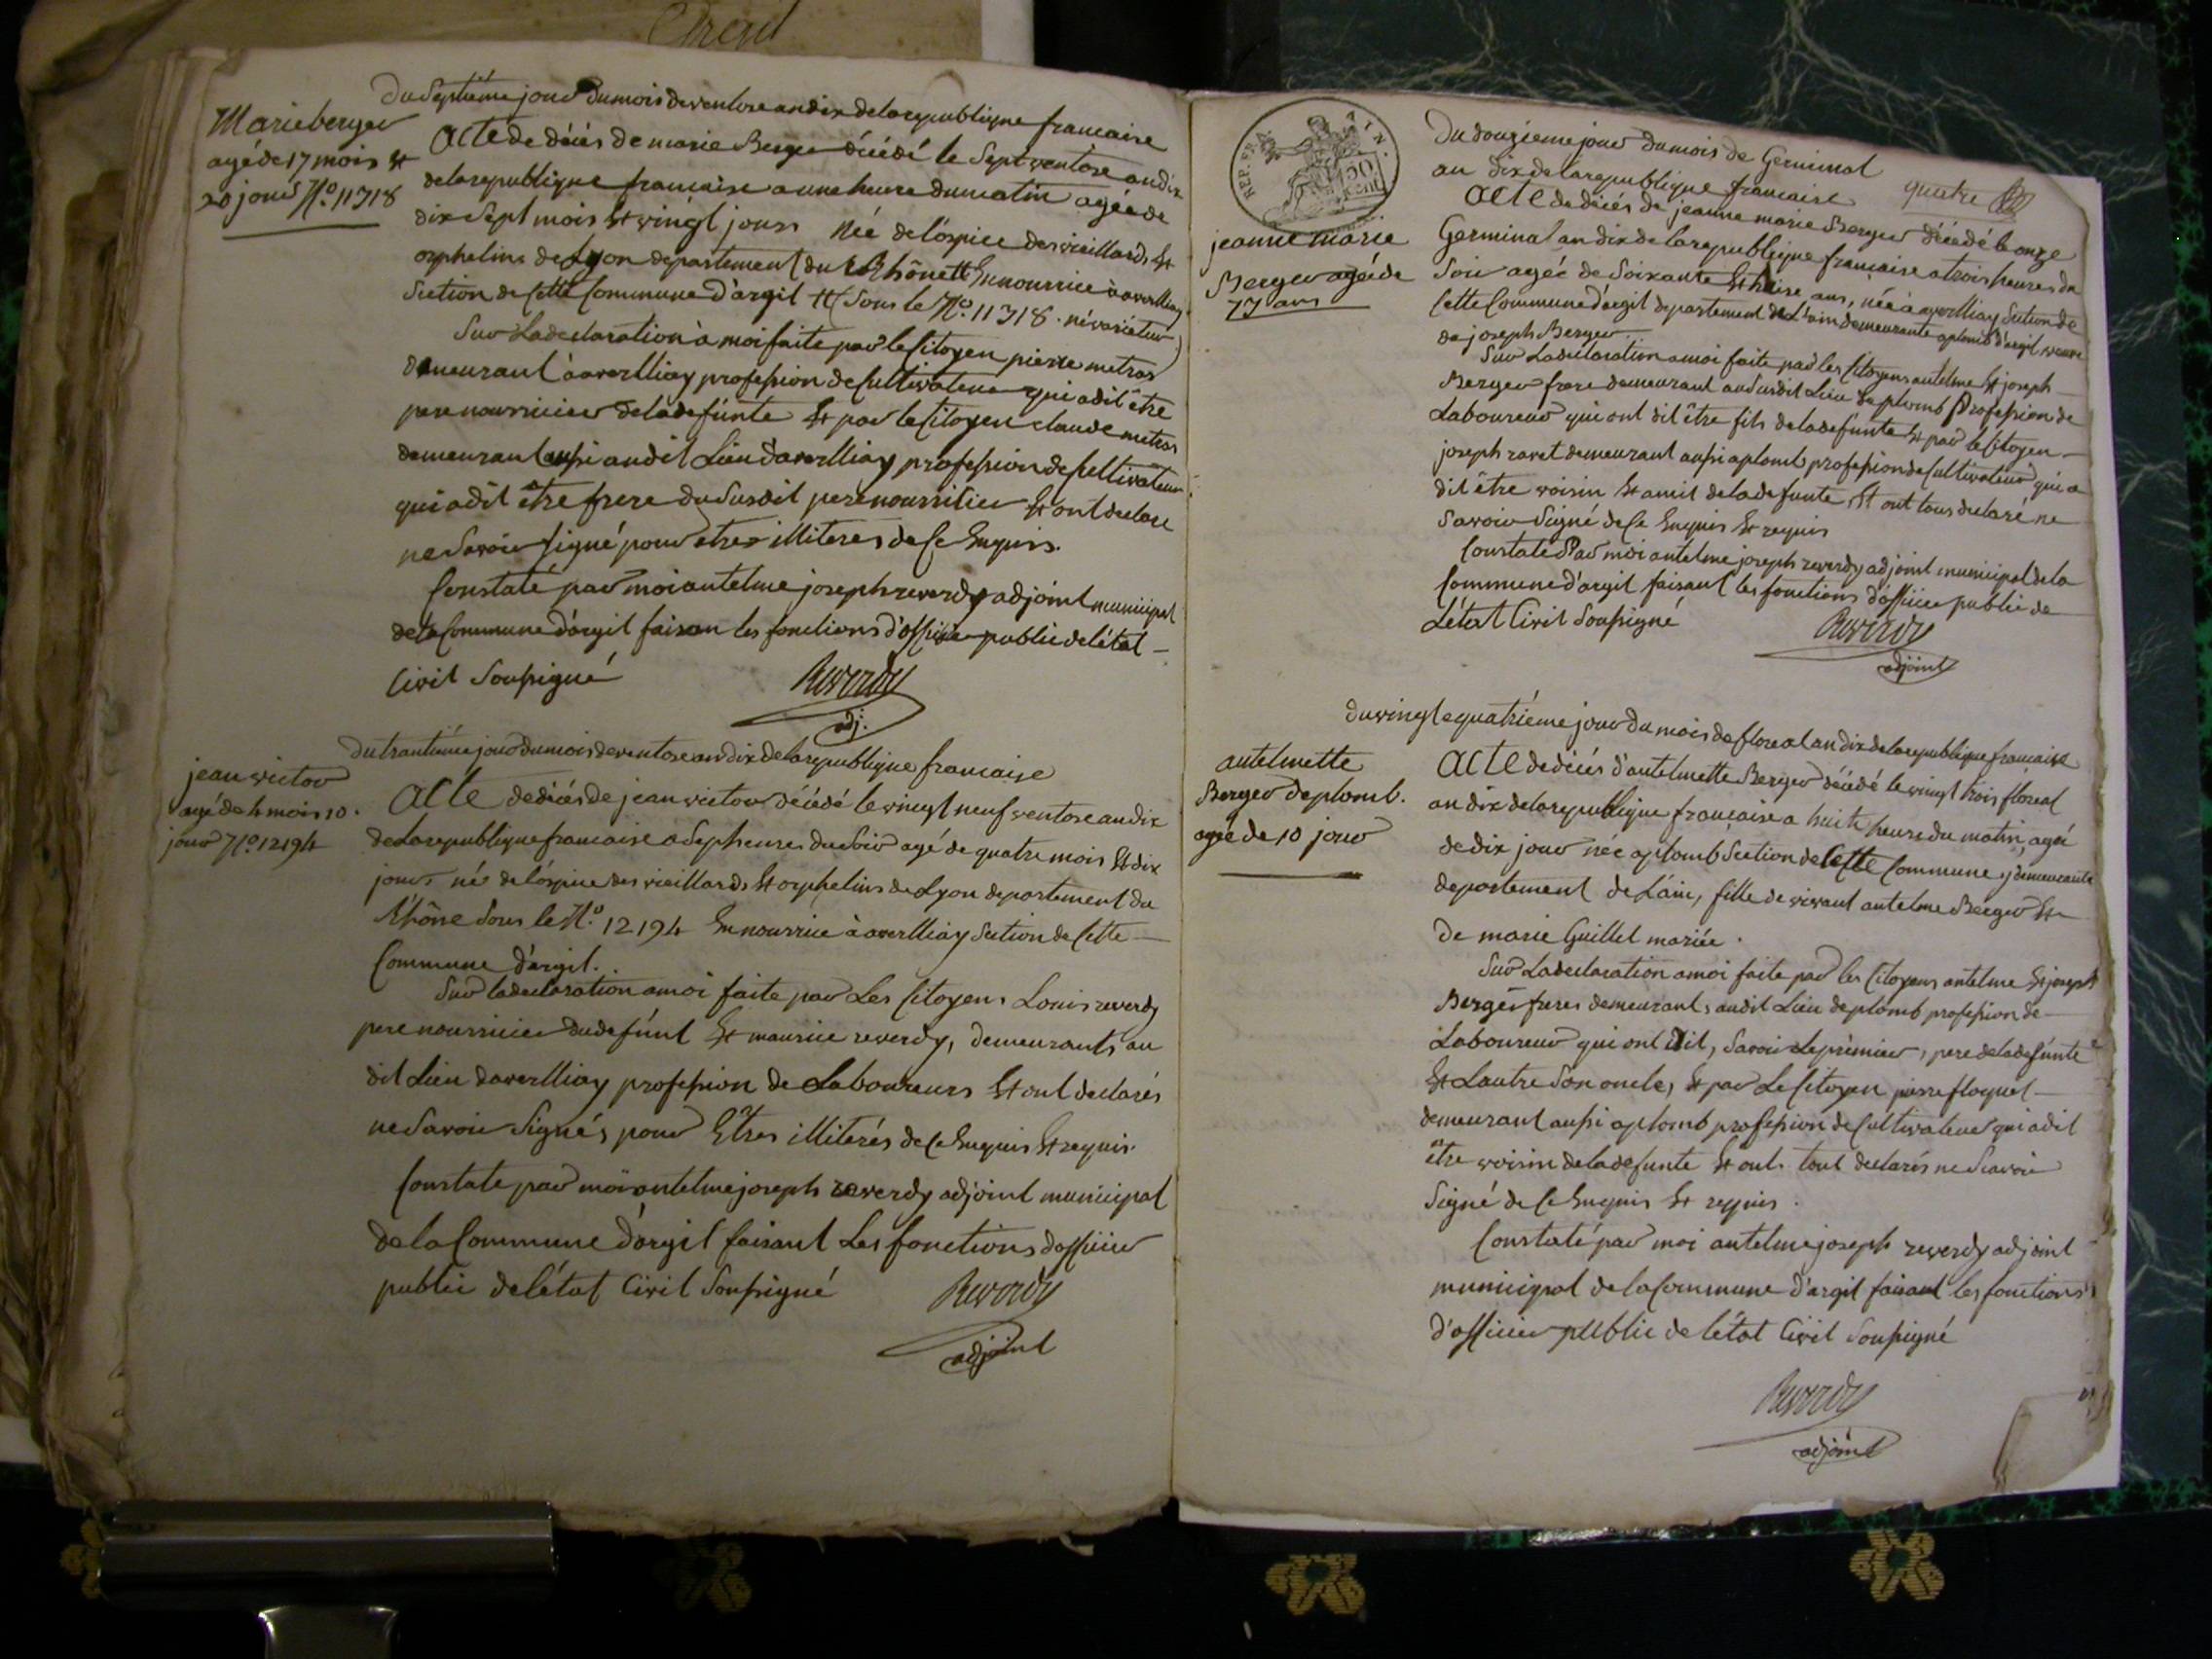 Argil
Du Septiéme jour du mois de ventose an dix de la republique francaise
Marie berger
agé de 17 mois et
20 jours N.º 11718
Acte de décés de marie Berger décédé le Sept ventose an dix
de la republique francaise a une heure du matin agée de
dix Sept mois et vingt jours née de lospice des vieillards et
orphelins de Lyon departement du Rhône En nourrice à averlliay
Section de Cette Commune d'argil (Sous le N.º 11718. né variétur)
Sur La declaration à moi faite par le Citoyen pierre metras
demeurant à averlliay profession de Cultivateur qui a dit être
pere nourricier de la defúnte et par le Citoyen claude metras
demeurant aussi au dit Lieu d'averlliay profession de Cultivateur
qui a dit être frere du Susdit pere nourricier et ont declaré
ne Savoir Signé pour etres illiteres de Ce Enquis.
Constaté par moi antelme joseph reverdy adjoint municipal
de la Commune d'argil faisan les fonctions d'officier public de létat
Civil Soussigné
Reverdy
adj.
du trantiéme jour du mois de ventose an dix de la republique francaise
jean victor
agé de 4 mois 10
jour N.º 12194
Acte de décés de jean victor décédé le vingt neuf ventose an dix
de La republique francaise a Sept heures du Soir agé de quatre mois et dix
jours né de lóspice des vieillards et orphelins de Lyon departement du
Rhône Sous le N.º 12194 En nourrice à averlliay Section de Cette
Commune d'argil.
Sur la declaration a moi faite par Les Citoyens Louis reverdy
pere nourricier du defúnt et maurice reverdy, demeurants au
dit Lieu daverlliay profession de Laboureurs et ont declarés
ne Savoir Signés pour Etres illiterés de Ce Enquis et requis.
Constate par moi antelme joseph reverdy adjoint municipal
de la Commune d'argil faisant Les fonctions d'officier
public de létat Civil Soussigné
Reverdy
adjoint
REP. FRA.
AIN.
50
cent
Du douzieme jour du mois de Germinal
an dix de la republique francaise
quatre
jeanne marie
Berger agée de
73 ans
Acte de décés de jeanne marie Berger décédé le onze
Germinal an dix de la republique francaise a trois heures du
Soir agée de Soixante et treise ans, née à averlliay Section de
Cette Commune d'argil departement de L'ain demeurante a plomb d'argil, veuve
de joseph Berger
Sur La declaration a moi faite par les Citoyens antelme et joseph
Berger frere demeurant au Susdit Lieu de plomb profession de
Laboureur qui ont dit être fils de la defunte et par le Citoyen
joseph ravet demeurant aussi a plomb profession de Cultivateur qui a
dit être voisin et amit de la defunte, et ont tous declaré ne
Savoir Signé de Ce Enquis et requis
Constaté Par moi antelme joseph reverdy adjoint municipal de la
Commune d'argil faisant les fonctions d'officier public de
L'état Civil Soussigné
Reverdy
adjoint
du vingt quatriéme jour du mois de floreal an dix de la republique francaise
antelmette
Berger de plomb.
agée de 10 jour
Acte de décés d'antelmette Berger décédé le vingt trois floreal
an dix de la republique francaise a huit heure du matin, agée
de dix jour née a plomb Section de Cette Commune y demeurante
departement de L'ain, fille de vivant antelme Berger et
de marie Guillet mariée.
Sur La declaration a moi faite par les Citoyens antelme et joseph
Berger freres demeurants audit Lieu de plomb profession de
Laboureur qui ont dit, Savoir Le prèmier, pere de la defúnte
et Lautre Son oncle, et par Le Citoyen pierre floquet
demeurant aussi a plomb profession de Cultivateur qui a dit
être voisin de la defunte et onts tout declarés ne Scavoir
Signé de Ce Enquis et requis.
Constaté par moi antelme joseph reverdy adjoint
municipal de la Commune d'argil faisant les fonctions
d'officier public de létat Civil Soussigné
Reverdy
adjoint